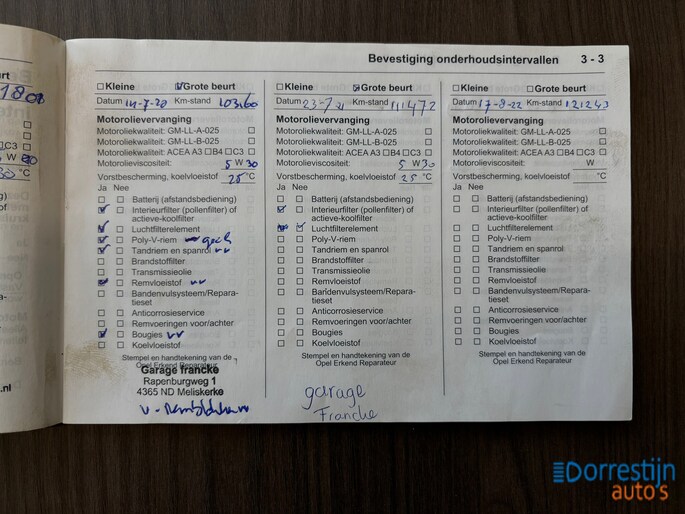 Bevestiging onderhoudsintervallen 3 - 3
Kleine Grote beurt
Datum 14-7-20 Km-stand 103160
Motorolievervanging
Motoroliekwaliteit: GM-LL-A-025
Motoroliekwaliteit: GM-LL-B-025
Motoroliekwaliteit: ACEA A3 B4 C3
Motorolieviscositeit: 5 W 30
Vorstbescherming, koelvloeistof 25 °C
Ja Nee
Batterij (afstandsbediening)
Interieurfilter (pollenfilter) of
actieve-koolfilter
Luchtfilterelement
Poly-V-riem
Tandriem en spanrol
Brandstoffilter
Transmissieolie
Remvloeistof
Bandenvulsysteem/Repara-
tieset
Anticorrosieservice
Remvoeringen voor/achter
Bougies
Koelvloeistof
Stempel en handtekening van de
Opel Erkend Reparateur
Garage francke
Rapenburgweg 1
4365 ND Meliskerke
Kleine Grote beurt
Datum 23-7-21 Km-stand 111472
Motorolievervanging
Motoroliekwaliteit: GM-LL-A-025
Motoroliekwaliteit: GM-LL-B-025
Motoroliekwaliteit: ACEA A3 B4 C3
Motorolieviscositeit: 5 W 30
Vorstbescherming, koelvloeistof 25 °C
Ja Nee
Batterij (afstandsbediening)
Interieurfilter (pollenfilter) of
actieve-koolfilter
Luchtfilterelement
Poly-V-riem
Tandriem en spanrol
Brandstoffilter
Transmissieolie
Remvloeistof
Bandenvulsysteem/Repara-
tieset
Anticorrosieservice
Remvoeringen voor/achter
Bougies
Koelvloeistof
Stempel en handtekening van de
Opel Erkend Reparateur
garage
Francke
Kleine Grote beurt
Datum 17-8-22 Km-stand 121243
Motorolievervanging
Motoroliekwaliteit: GM-LL-A-025
Motoroliekwaliteit: GM-LL-B-025
Motoroliekwaliteit: ACEA A3 B4 C3
Motorolieviscositeit: W
Vorstbescherming, koelvloeistof °C
Ja Nee
Batterij (afstandsbediening)
Interieurfilter (pollenfilter) of
actieve-koolfilter
Luchtfilterelement
Poly-V-riem
Tandriem en spanrol
Brandstoffilter
Transmissieolie
Remvloeistof
Bandenvulsysteem/Repara-
tieset
Anticorrosieservice
Remvoeringen voor/achter
Bougies
Koelvloeistof
Stempel en handtekening van de
Opel Erkend Reparateur
Dorrestijn
auto's